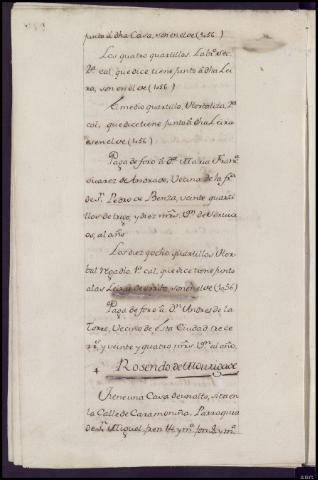 junto â dha Casa, son en el de (456)
Los quatro quartillos. Labº. Sec.
2ª. cal. que dice tiene junto â dha Lei
xa, son en el de (456)
El medio quartillo, Hortaliza, 2ª
cal. que dice tiene junto â dha Leixa
es en el de (456)
Paga de foro â Dª. Maria Franª.
Suarez de Andrade, Vecina de la fª.
de Sⁿ. Pedro de Benza, veinte quarti
llos de trigo, y diez mrs. Vⁿ. de
al año
Los diez y ocho quartillos Hor
tal Regadio 1ª. cal. que dice tiene junto
a las son en el de (456)
Paga de foro â Dⁿ. Andres de la
Torre, Vecino de esta Ciudad trece
rˢ. y veinte y quatro mrs. Vⁿ. al año
+ Rosendo de
Tiene una Casa de un alto, sita en
la Calle de Caramoniña, Parroquia
de Sⁿ. Miguel